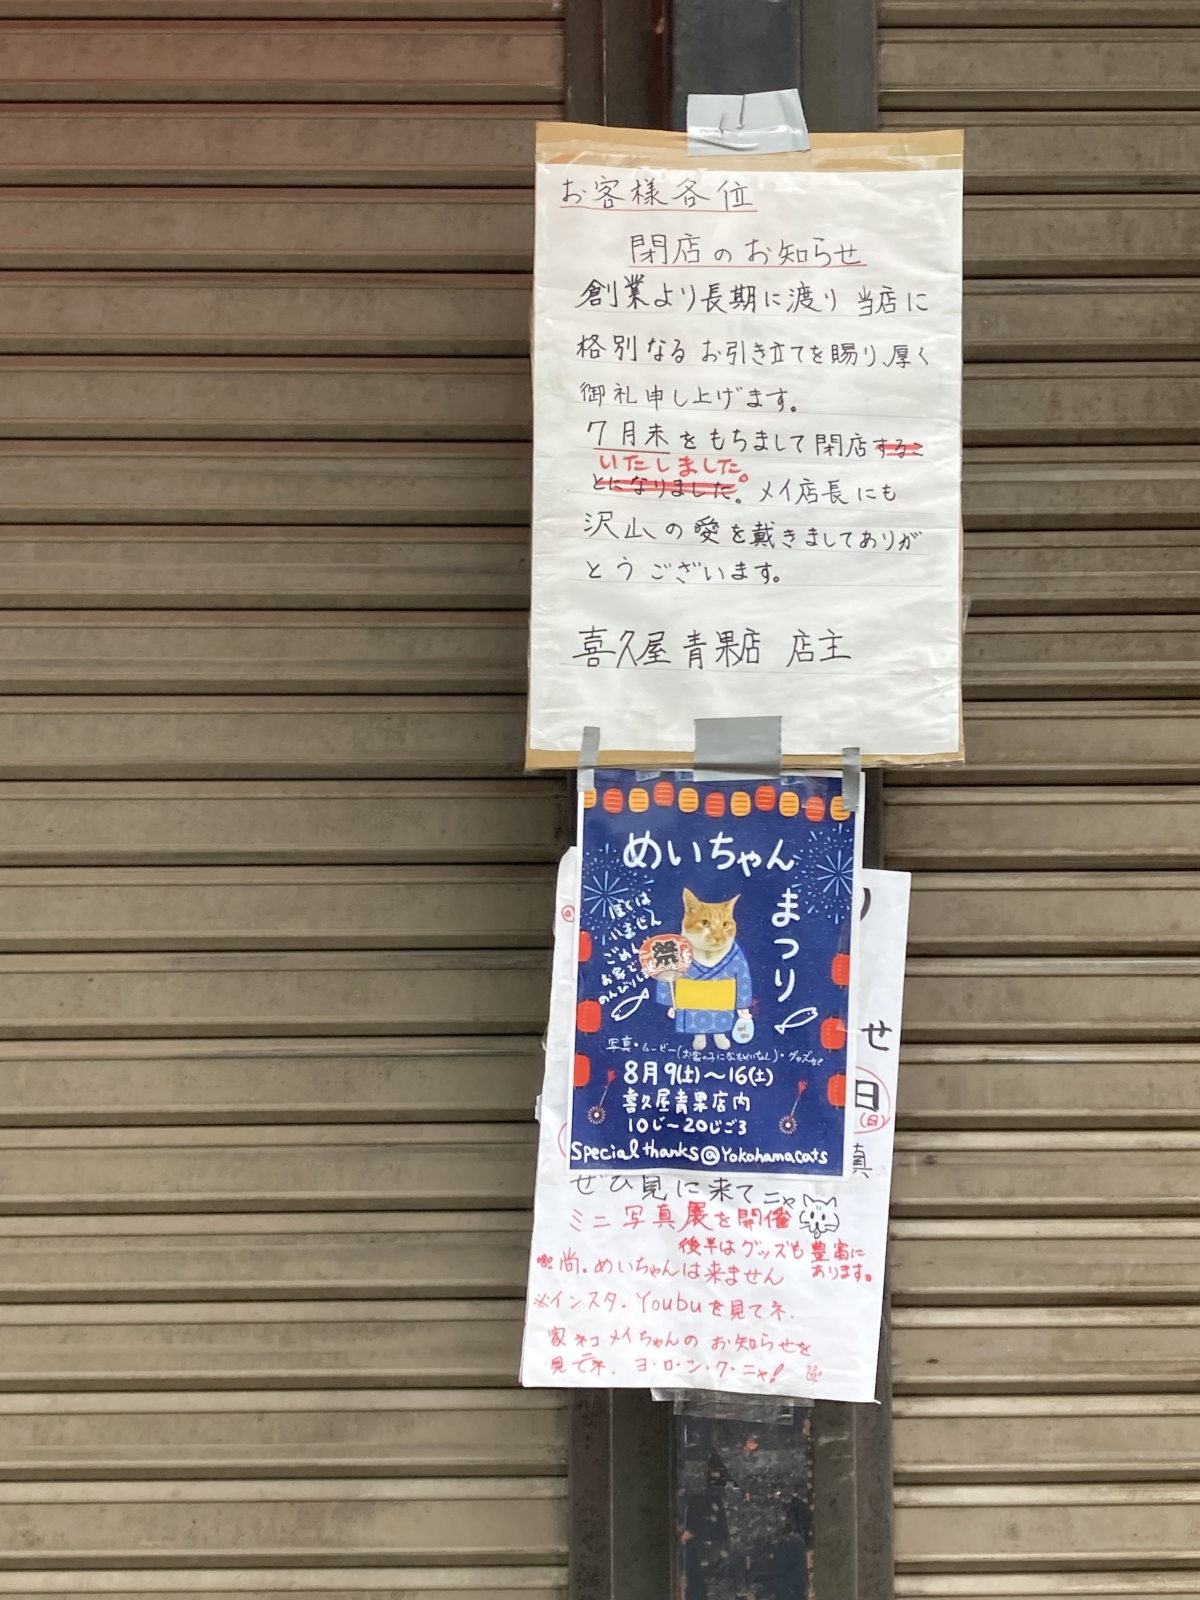 お客様各位
閉店のお知らせ
創業より長期に渡り 当店に
格別なる お引き立てを賜り、厚く
御礼申し上げます。
7月末をもちまして閉店するこ
いたしました。
とになりました。メイ店長にも
沢山の愛を戴きましてありが
とうございます。
喜久屋青果店 店主
めいちゃん
まつり
ぼくは
いません
ごめん
お家で
のんびり
祭
写真・ムービー(お家の子になためいちゃん)・グッズなど
8月9(土)〜16(土)
喜久屋青果店内
10じ〜20じごろ
Special thanks@Yokohamacats
り
せ
日
(日)
真
ぜひ見に来てニャ
ミニ写真展を開催
後半はグッズも豊富に
あります。
尚。めいちゃんは来ません
※インスタ.Youbuを見てネ.
家ネコメイちゃんのお知らせを
見てネ. ヨ・ロ・シ・ク・ニャ!